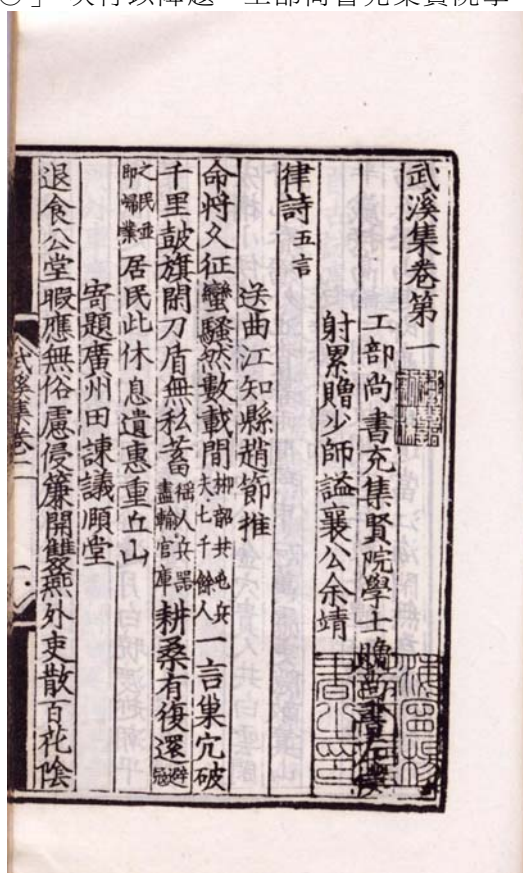 次行以降題 工部尚書充集賢院學
武溪集卷第一
工部尚書充集賢院學士贈尚書左僕
射累贈少師謚襄公余靖
律詩 五言
送曲江知縣趙節推
命將久征蠻騷然數載間郴韶共屯兵夫七千餘人一言巢穴破
千里鼓旗閑刀盾無私蓄猺人兵器盡輸官庫耕桑有復還避冦
之民並即歸業居民此休息遺惠重丘山
寄題廣州田諫議頤堂
退食公堂暇應無俗慮侵簾開雙燕外吏散百花陰
武溪集卷一